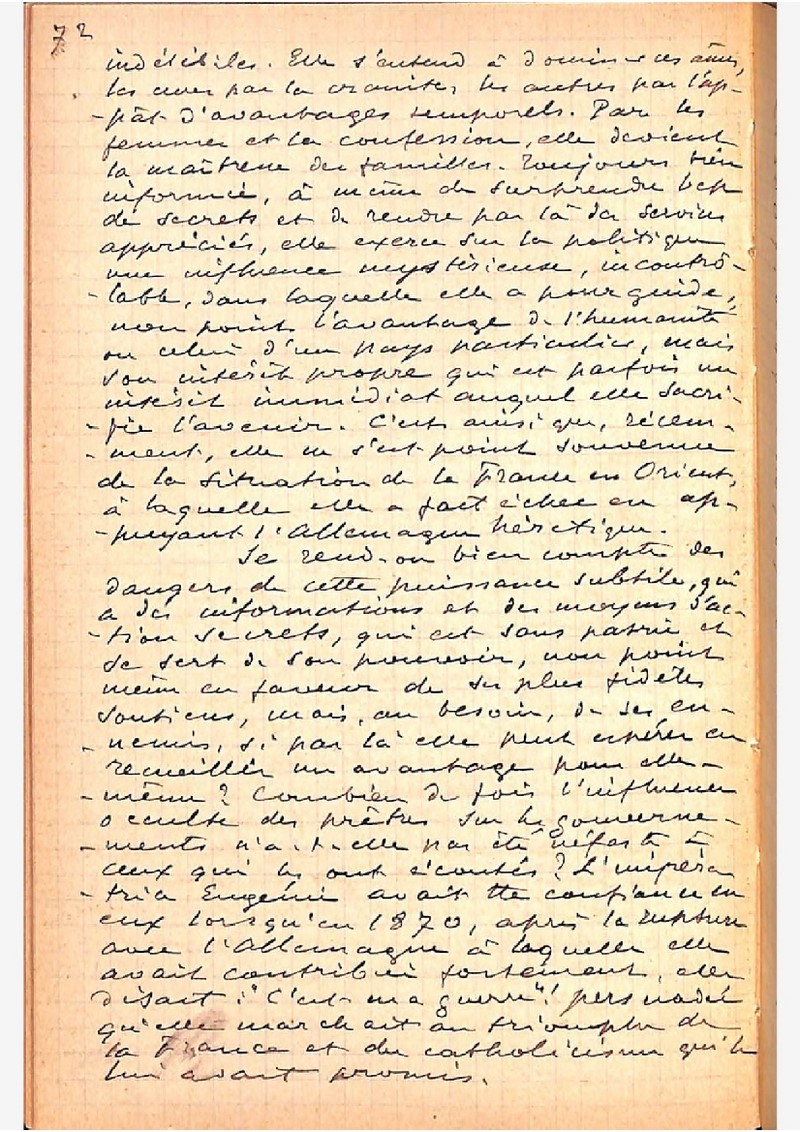 72
indélébiles. Elle s'entend à dominer les âmes,
les unes par la crainte, les autres par l'ap-
-pât d'avantages temporels. Par les
femmes et la confession, elle devient
la maîtresse des familles. Toujours bien
informée, à même de surprendre bcp
de secrets et de rendre par là des services
appréciés, elle exerce sur la politique
une influence mystérieuse, incontrô-
-lable, dans laquelle elle a pour guide,
non point l'avantage de l'humanité
ou celui d'un pays particulier, mais
son intérêt propre qui est parfois un
intérêt immédiat auquel elle sacri-
-fie l'avenir. C'est ainsi que, récem-
-ment, elle ne s'est point souvenue
de la situation de la France en Orient,
à laquelle elle a fait échec en ap-
-puyant l'Allemagne hérétique.
Se rend-on bien compte des
dangers de cette puissance subtile, qui
a des informations et des moyens d'ac-
-tion secrets, qui est sans patrie et
se sert de son pouvoir, non point
même en faveur de ses plus fidèles
soutiens, mais, au besoin, de ses en-
-nemis, si par là elle peut espérer en
recueillir un avantage pour elle-
-même? Combien de fois l'influence
occulte des prêtres sur les gouverne-
-ments n'a-t-elle pas été néfaste à
ceux qui les ont écoutés? L'impéra
-trice Eugénie avait tte confiance en
eux lorsqu'en 1870, après la rupture
avec l'Allemagne à laquelle elle
avait contribué fortement, elle
disait: "C'est ma guerre"! persuadée
qu'elle marchait au triomphe de
la France et du catholicisme qu'ils
lui avait promis.